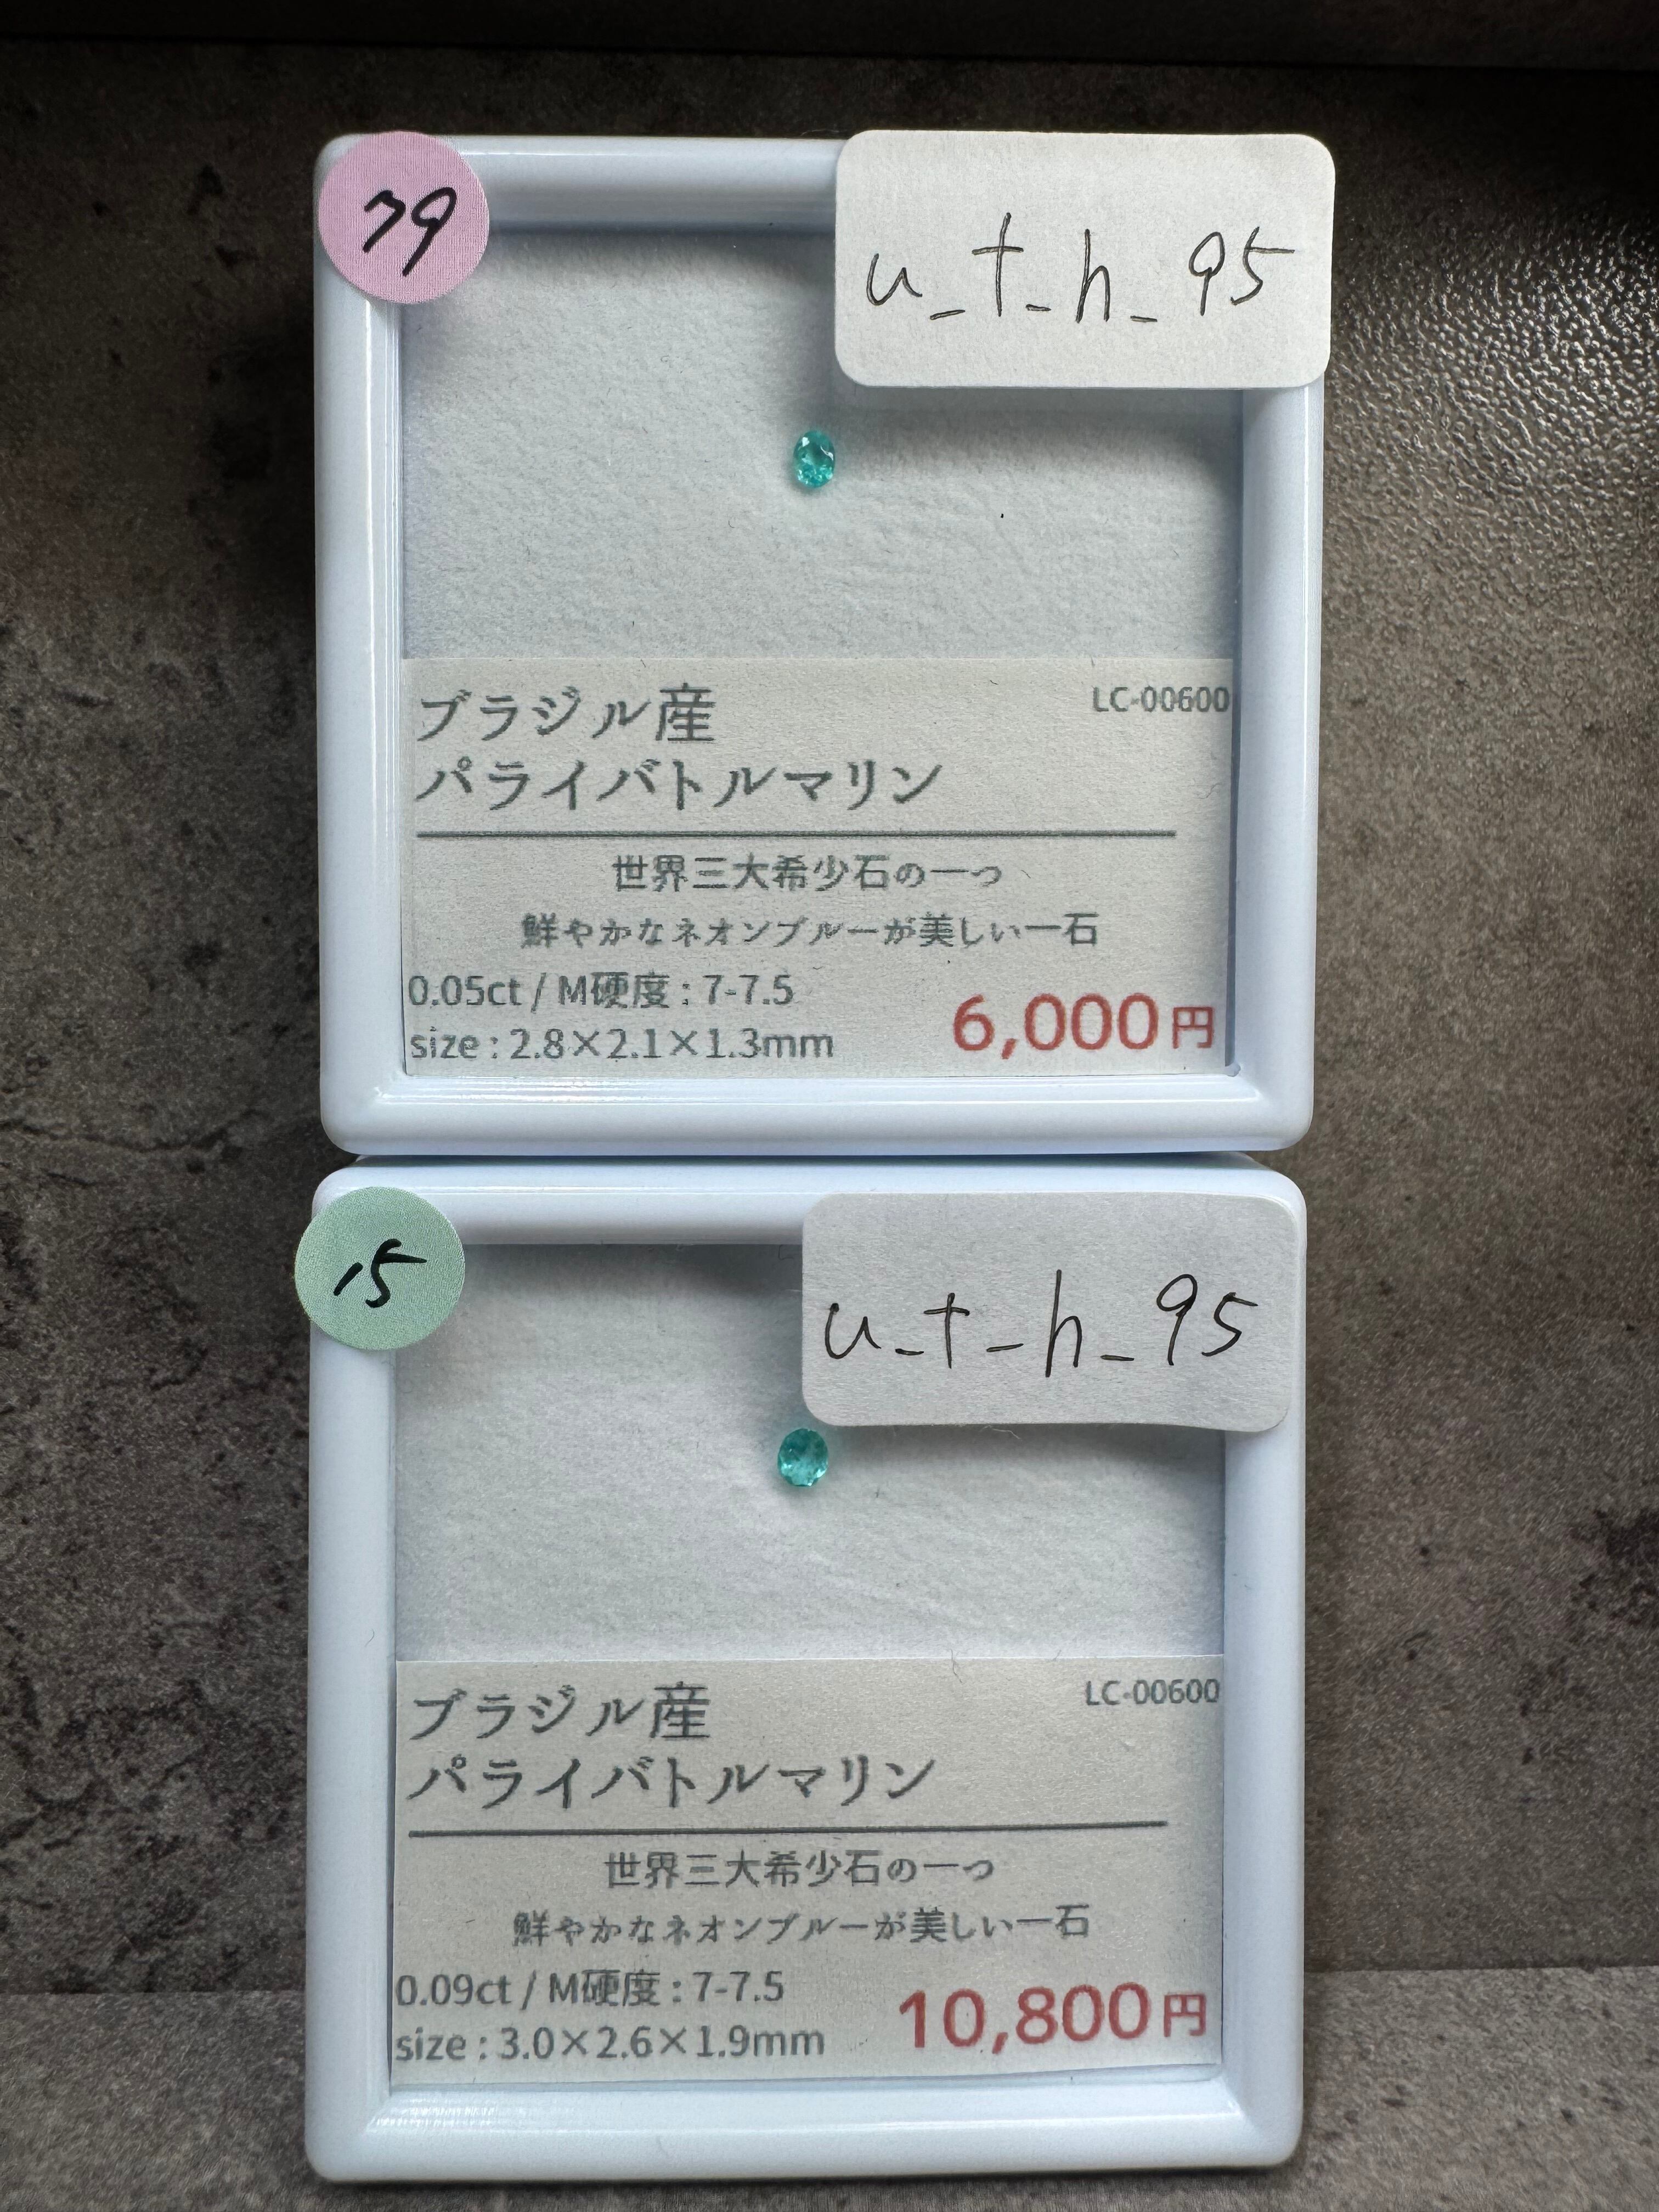 79
u_t_h_95
ブラジル産
LC-00600
パライバトルマリン
世界三大希少石の一つ
鮮やかなネオンブルーが美しい一石
0.05ct / M硬度 : 7-7.5
size : 2.8×2.1×1.3mm
6,000円
15
u_t_h_95
ブラジル産
LC-00600
パライバトルマリン
世界三大希少石の一つ
鮮やかなネオンブルーが美しい一石
0.09ct / M硬度 : 7-7.5
size : 3.0×2.6×1.9mm
10,800円